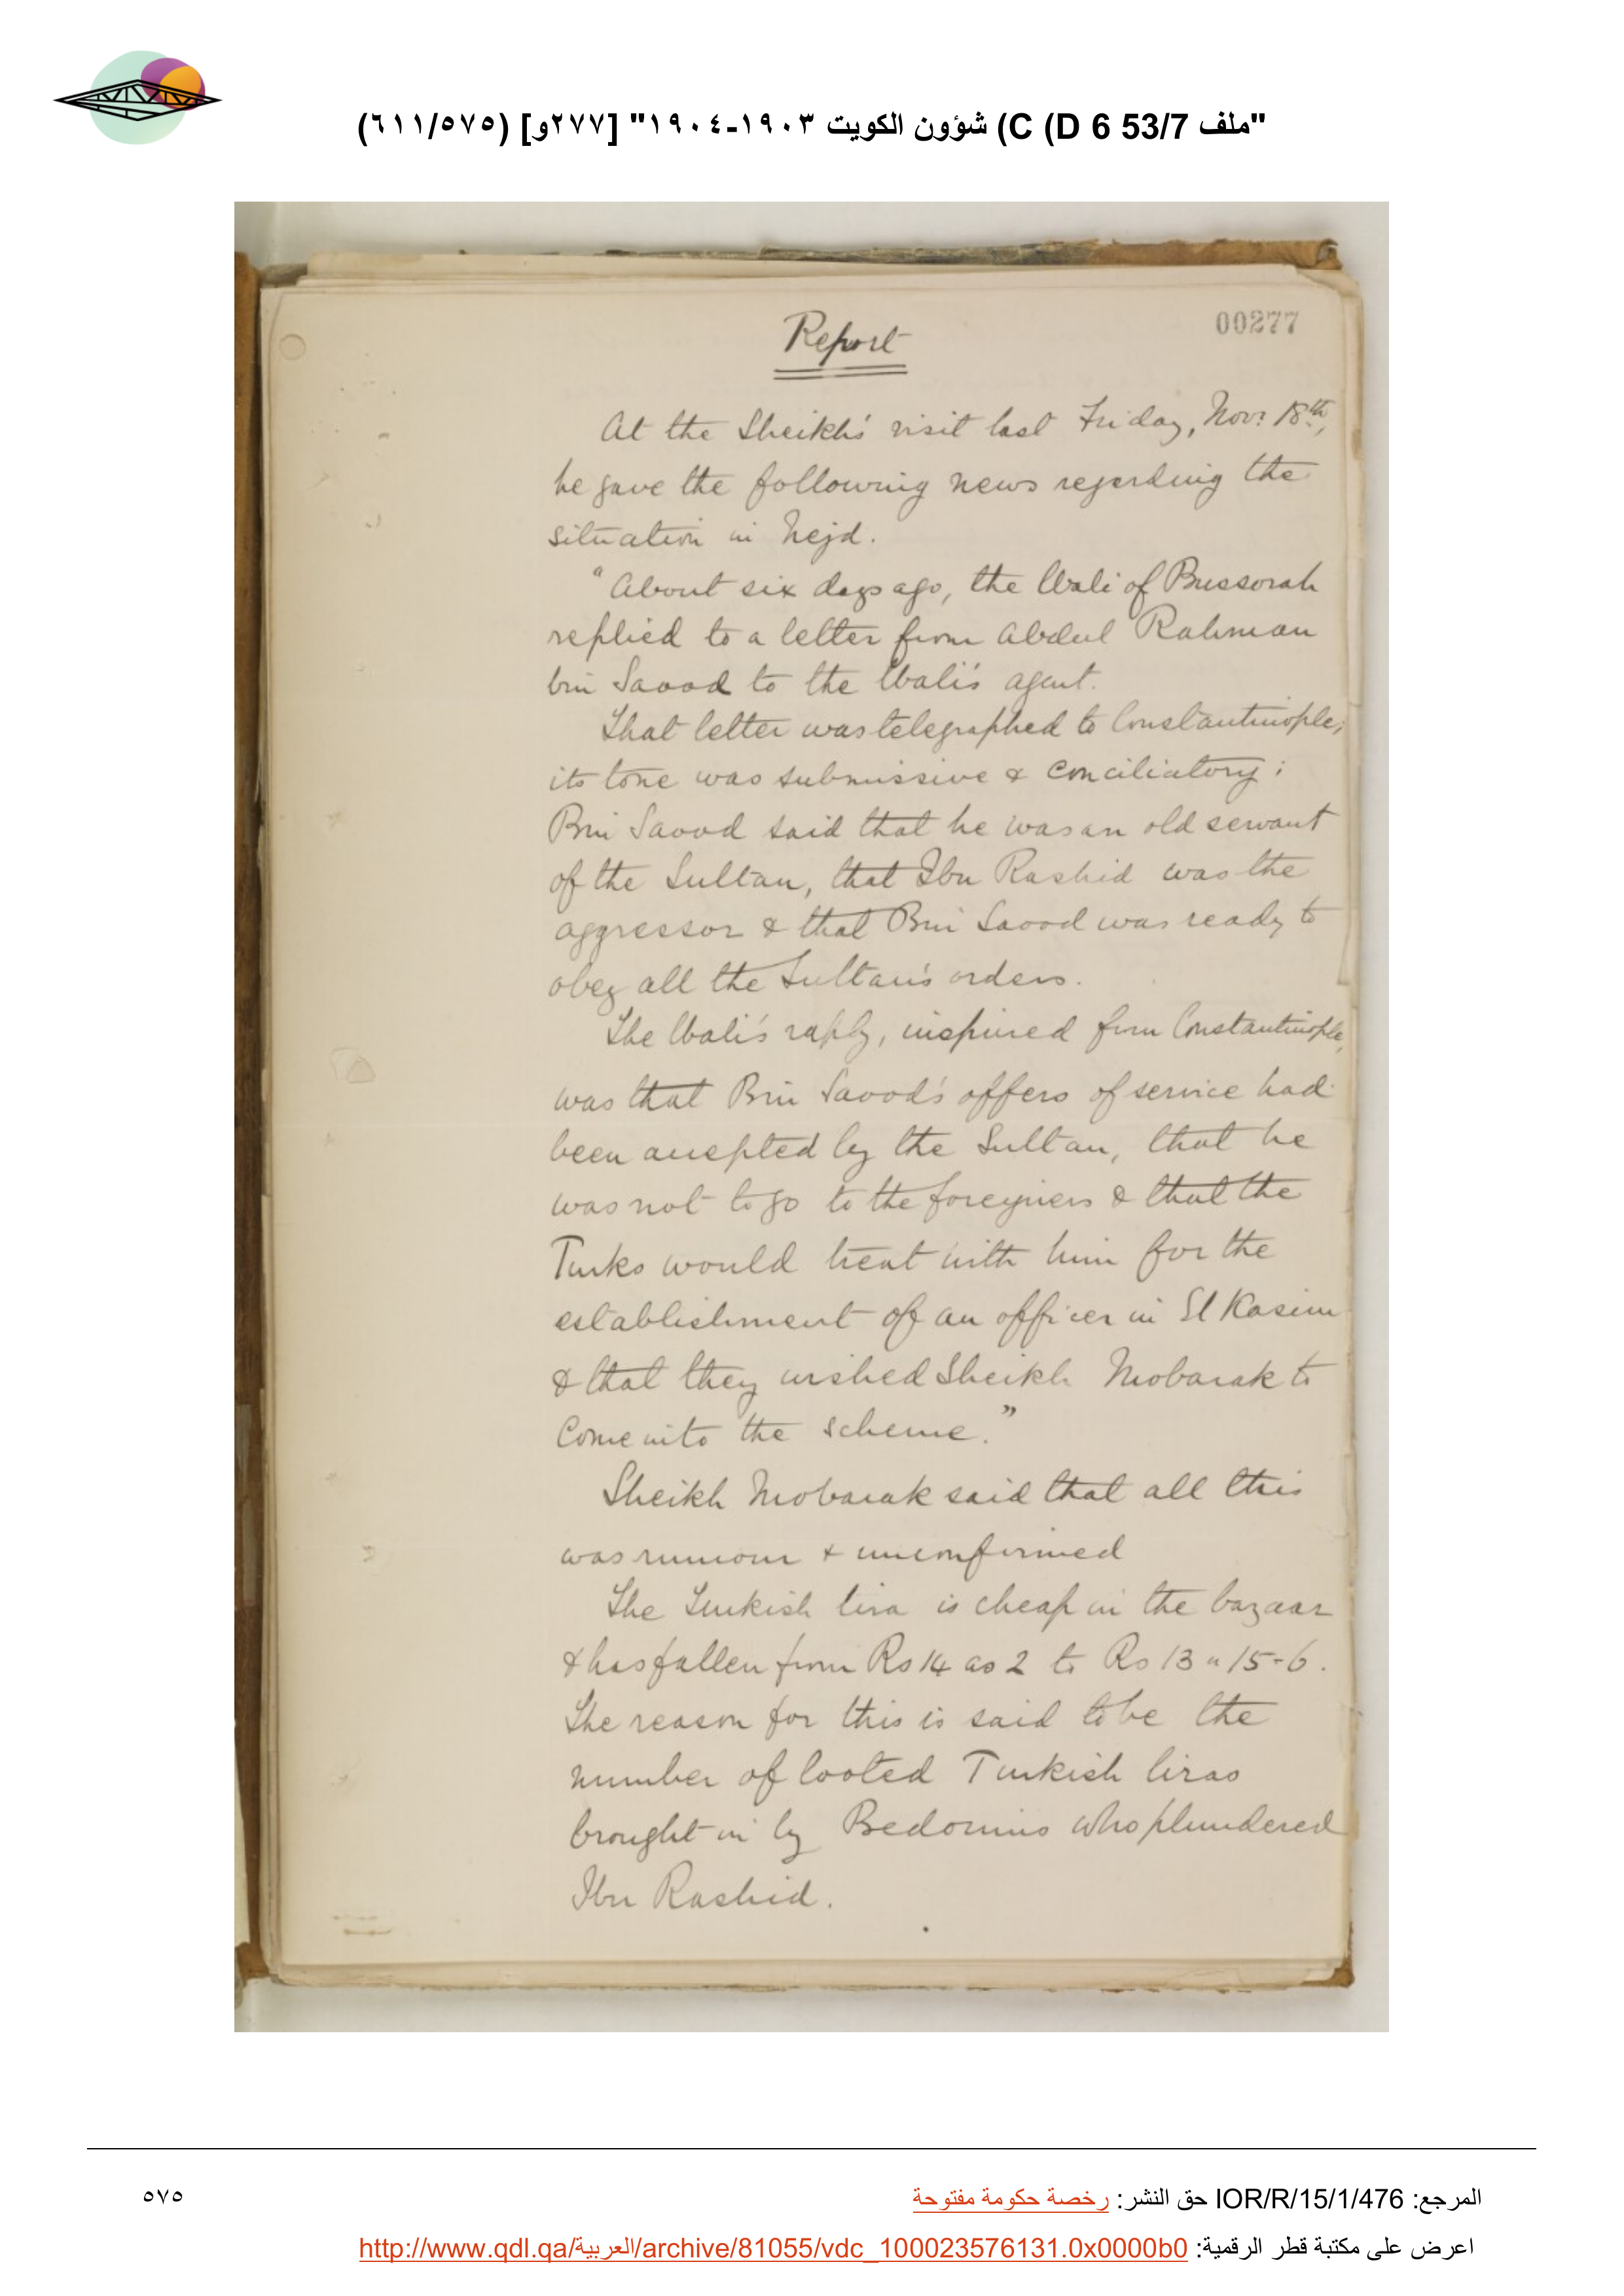 "ملف 53/7 D 6) C) شؤون الكويت ١٩٠٣-١٩٠٤" [٢٧٧و] (٦١١/٥٧٥)
00277
Report
At the Sheikh's visit last Friday, Nov: 18th,
he gave the following news regarding the
situation in Nejd.
"About six days ago, the Wali of Bussorah
replied to a letter from Abdul Rahman
bin Saood to the Wali's agent.
That letter was telegraphed to Constantinople;
its tone was submissive & conciliatory;
Bin Saood said that he was an old servant
of the Sultan, that Ibn Rashid was the
aggressor & that Bin Saood was ready to
obey all the Sultan's orders.
The Wali's reply, inspired from Constantinople,
was that Bin Saood's offers of service had
been accepted by the Sultan, that he
was not to go to the foreigners & that the
Turks would treat with him for the
establishment of an officer in El Kasim
& that they wished Sheikh Mobarak to
come into the scheme."
Sheikh Mobarak said that all this
was rumour & unconfirmed
The Turkish lira is cheap in the bazaar
& has fallen from Rs 14 as 2 to Rs 13 " 15-6.
The reason for this is said to be the
number of looted Turkish liras
brought in by Bedouins who plundered
Ibn Rashid.
المرجع: IOR/R/15/1/476 حق النشر: رخصة حكومة مفتوحة
٥٧٥
اعرض على مكتبة قطر الرقمية: http://www.qdl.qa/العربية/archive/81055/vdc_100023576131.0x0000b0